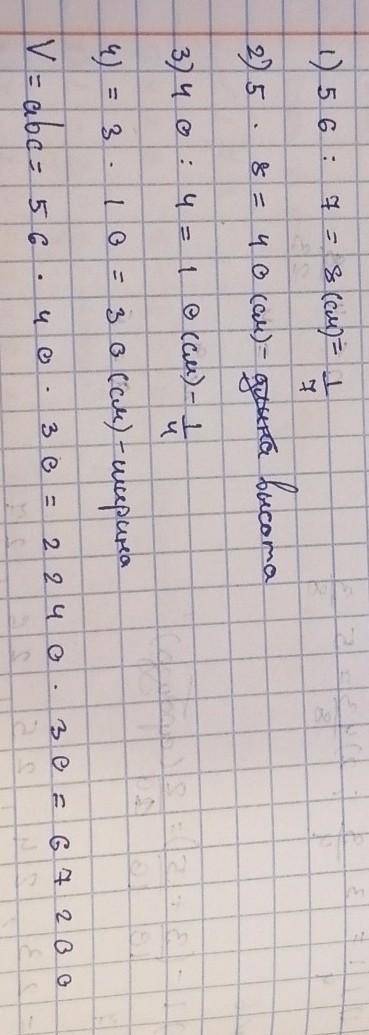 1) 56 : 7 = 8 (см) = 1/7
2) 5 · 8 = 40 (см) = высота
3) 40 : 4 = 10 (см) - 1/4
4) = 3 · 10 = 30 (см) - ширина
V = abc = 56 · 40 · 30 = 2240 · 30 = 67200